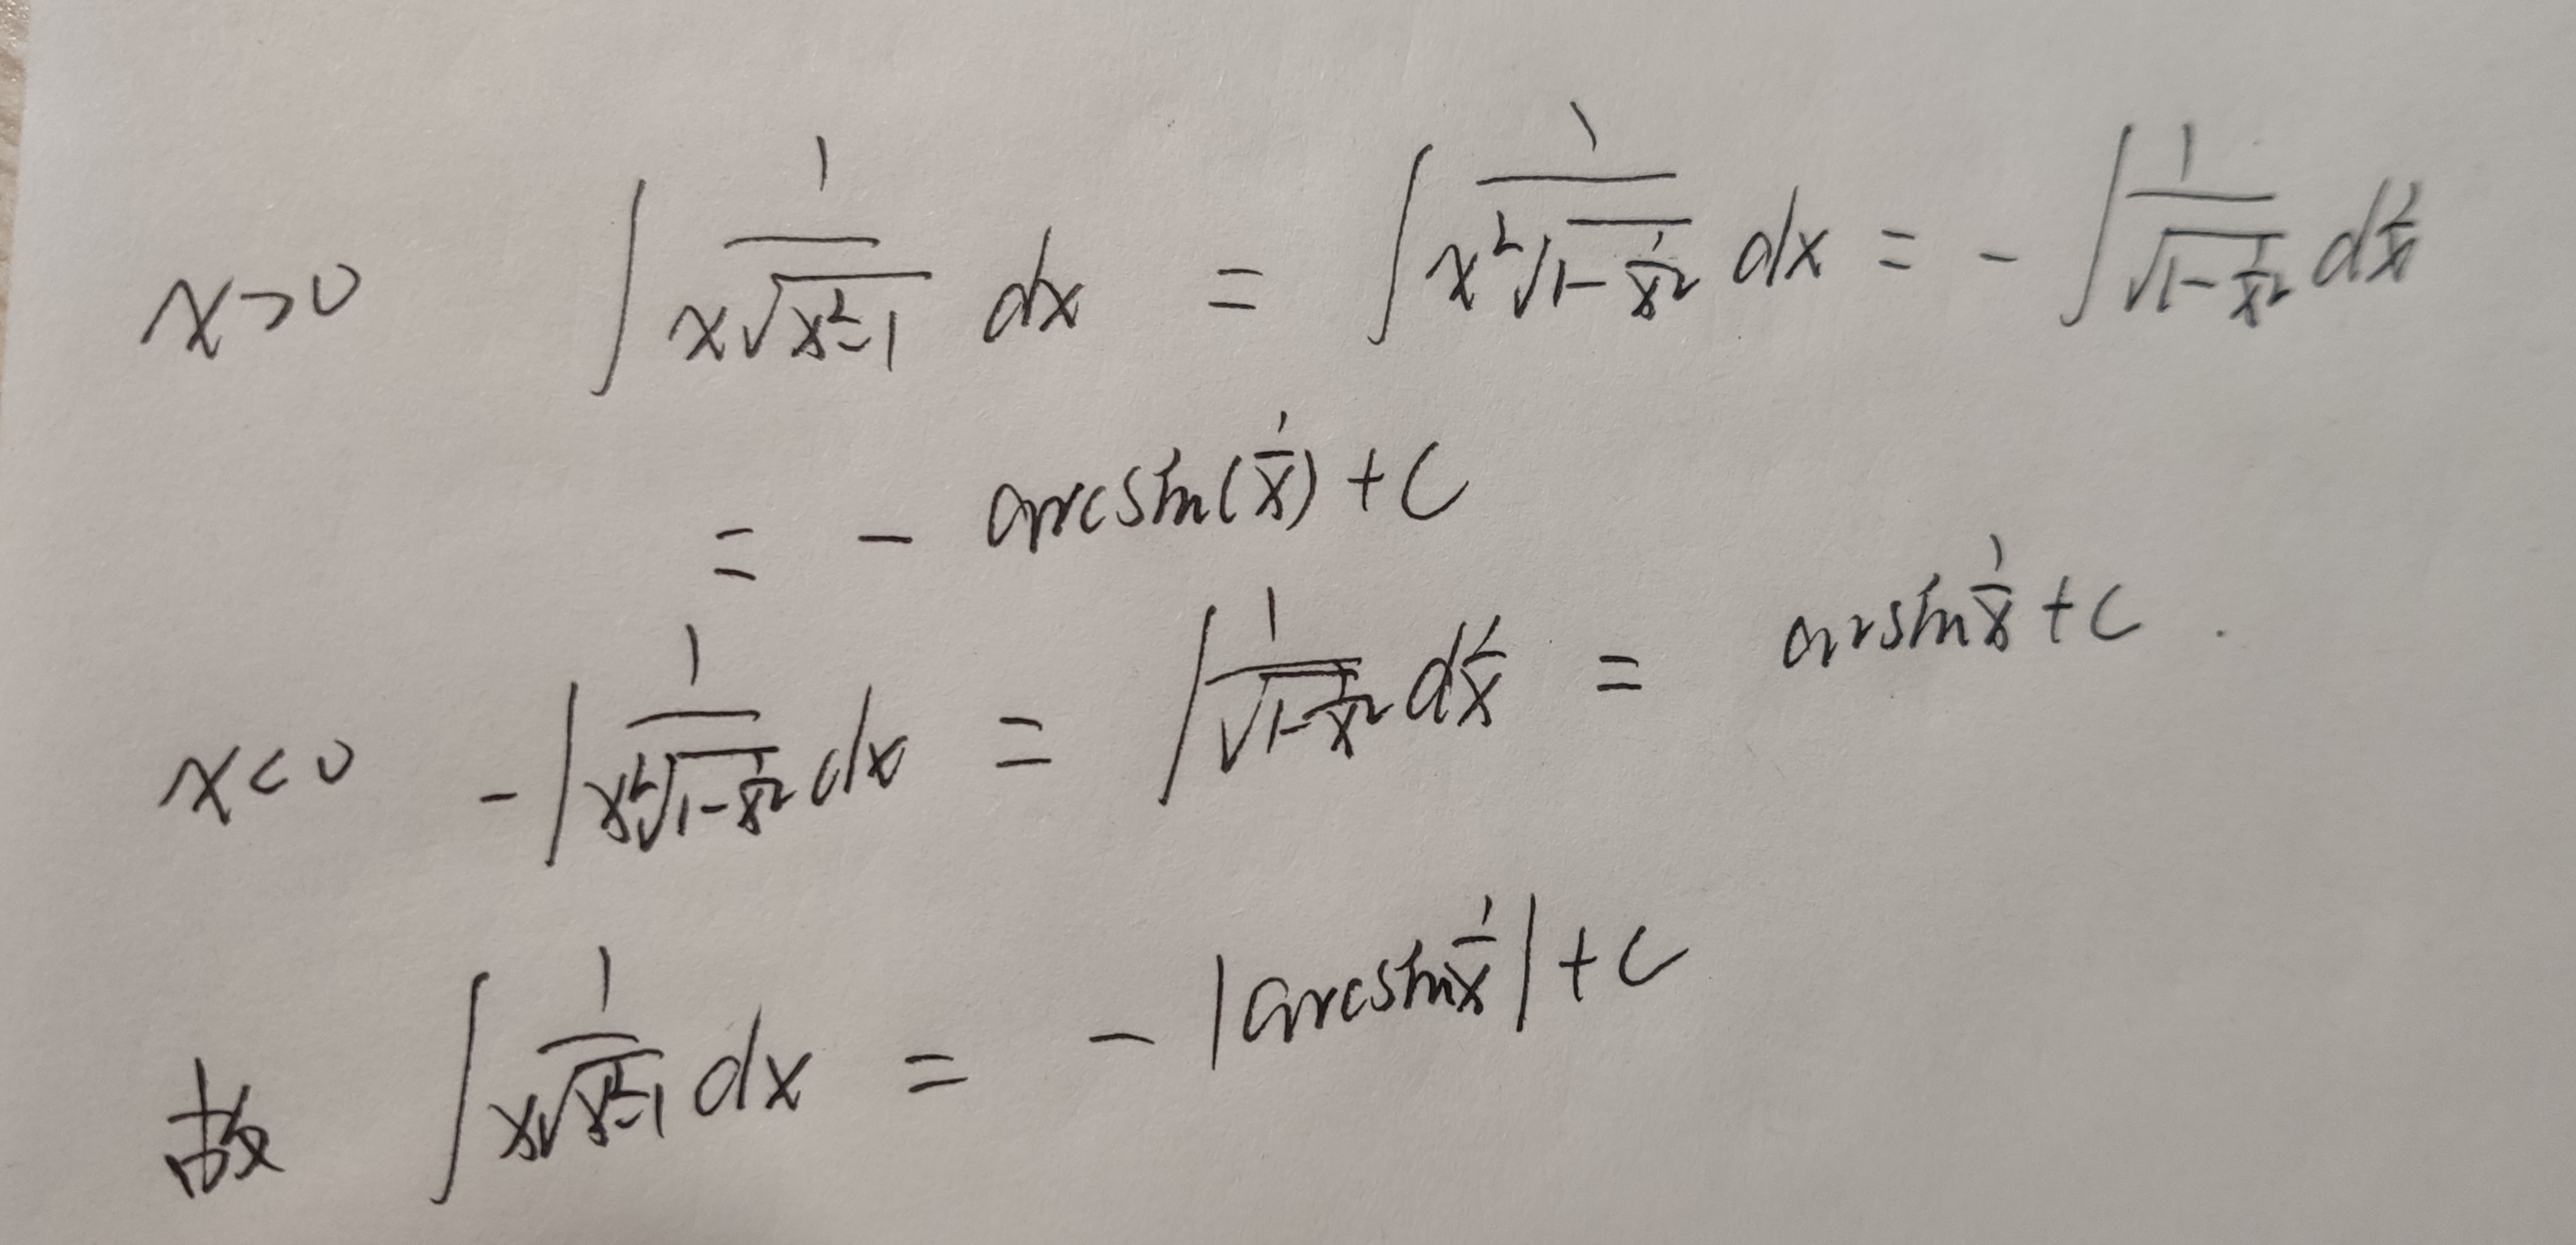 x>0 ∫ 1/(x√(x²-1)) dx = ∫ 1/(x²√(1-1/x²)) dx = - ∫ 1/√(1-1/x²) d1/x
= - arcsin(1/x) + C
x<0 -∫ 1/(x²√(1-1/x²)) dx = ∫ 1/√(1-1/x²) d1/x = arsin 1/x + C.
故 ∫ 1/(x√(x²-1)) dx = - |arcsin 1/x| + C